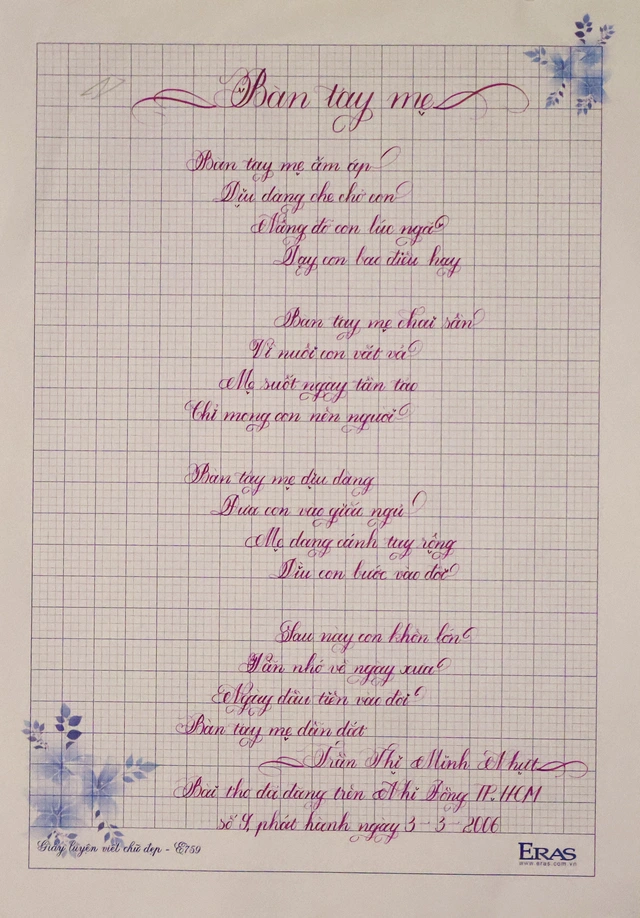 Bàn tay mẹ
Bàn tay mẹ ấm áp
Dịu dàng che chở con
Nâng đỡ con lúc ngã
Dạy con bao điều hay
Bàn tay mẹ chai sần
Vì nuôi con vất vả
Mẹ suốt ngày tần tảo
Chỉ mong con nên người
Bàn tay mẹ dịu dàng
Đưa con vào giấc ngủ
Mẹ dang cánh tay rộng
Dìu con bước vào đời
Sau này con khôn lớn
Vẫn nhớ về ngày xưa
Ngày đầu tiên vào đời
Bàn tay mẹ dẫn dắt
Trần Thị Minh Nhựt
Bài thơ đã đăng trên Nhi Đồng TP.HCM
số 9, phát hành ngày 3-3-2006
Giấy luyện viết chữ đẹp - E759
ERAS
www.eras.com.vn